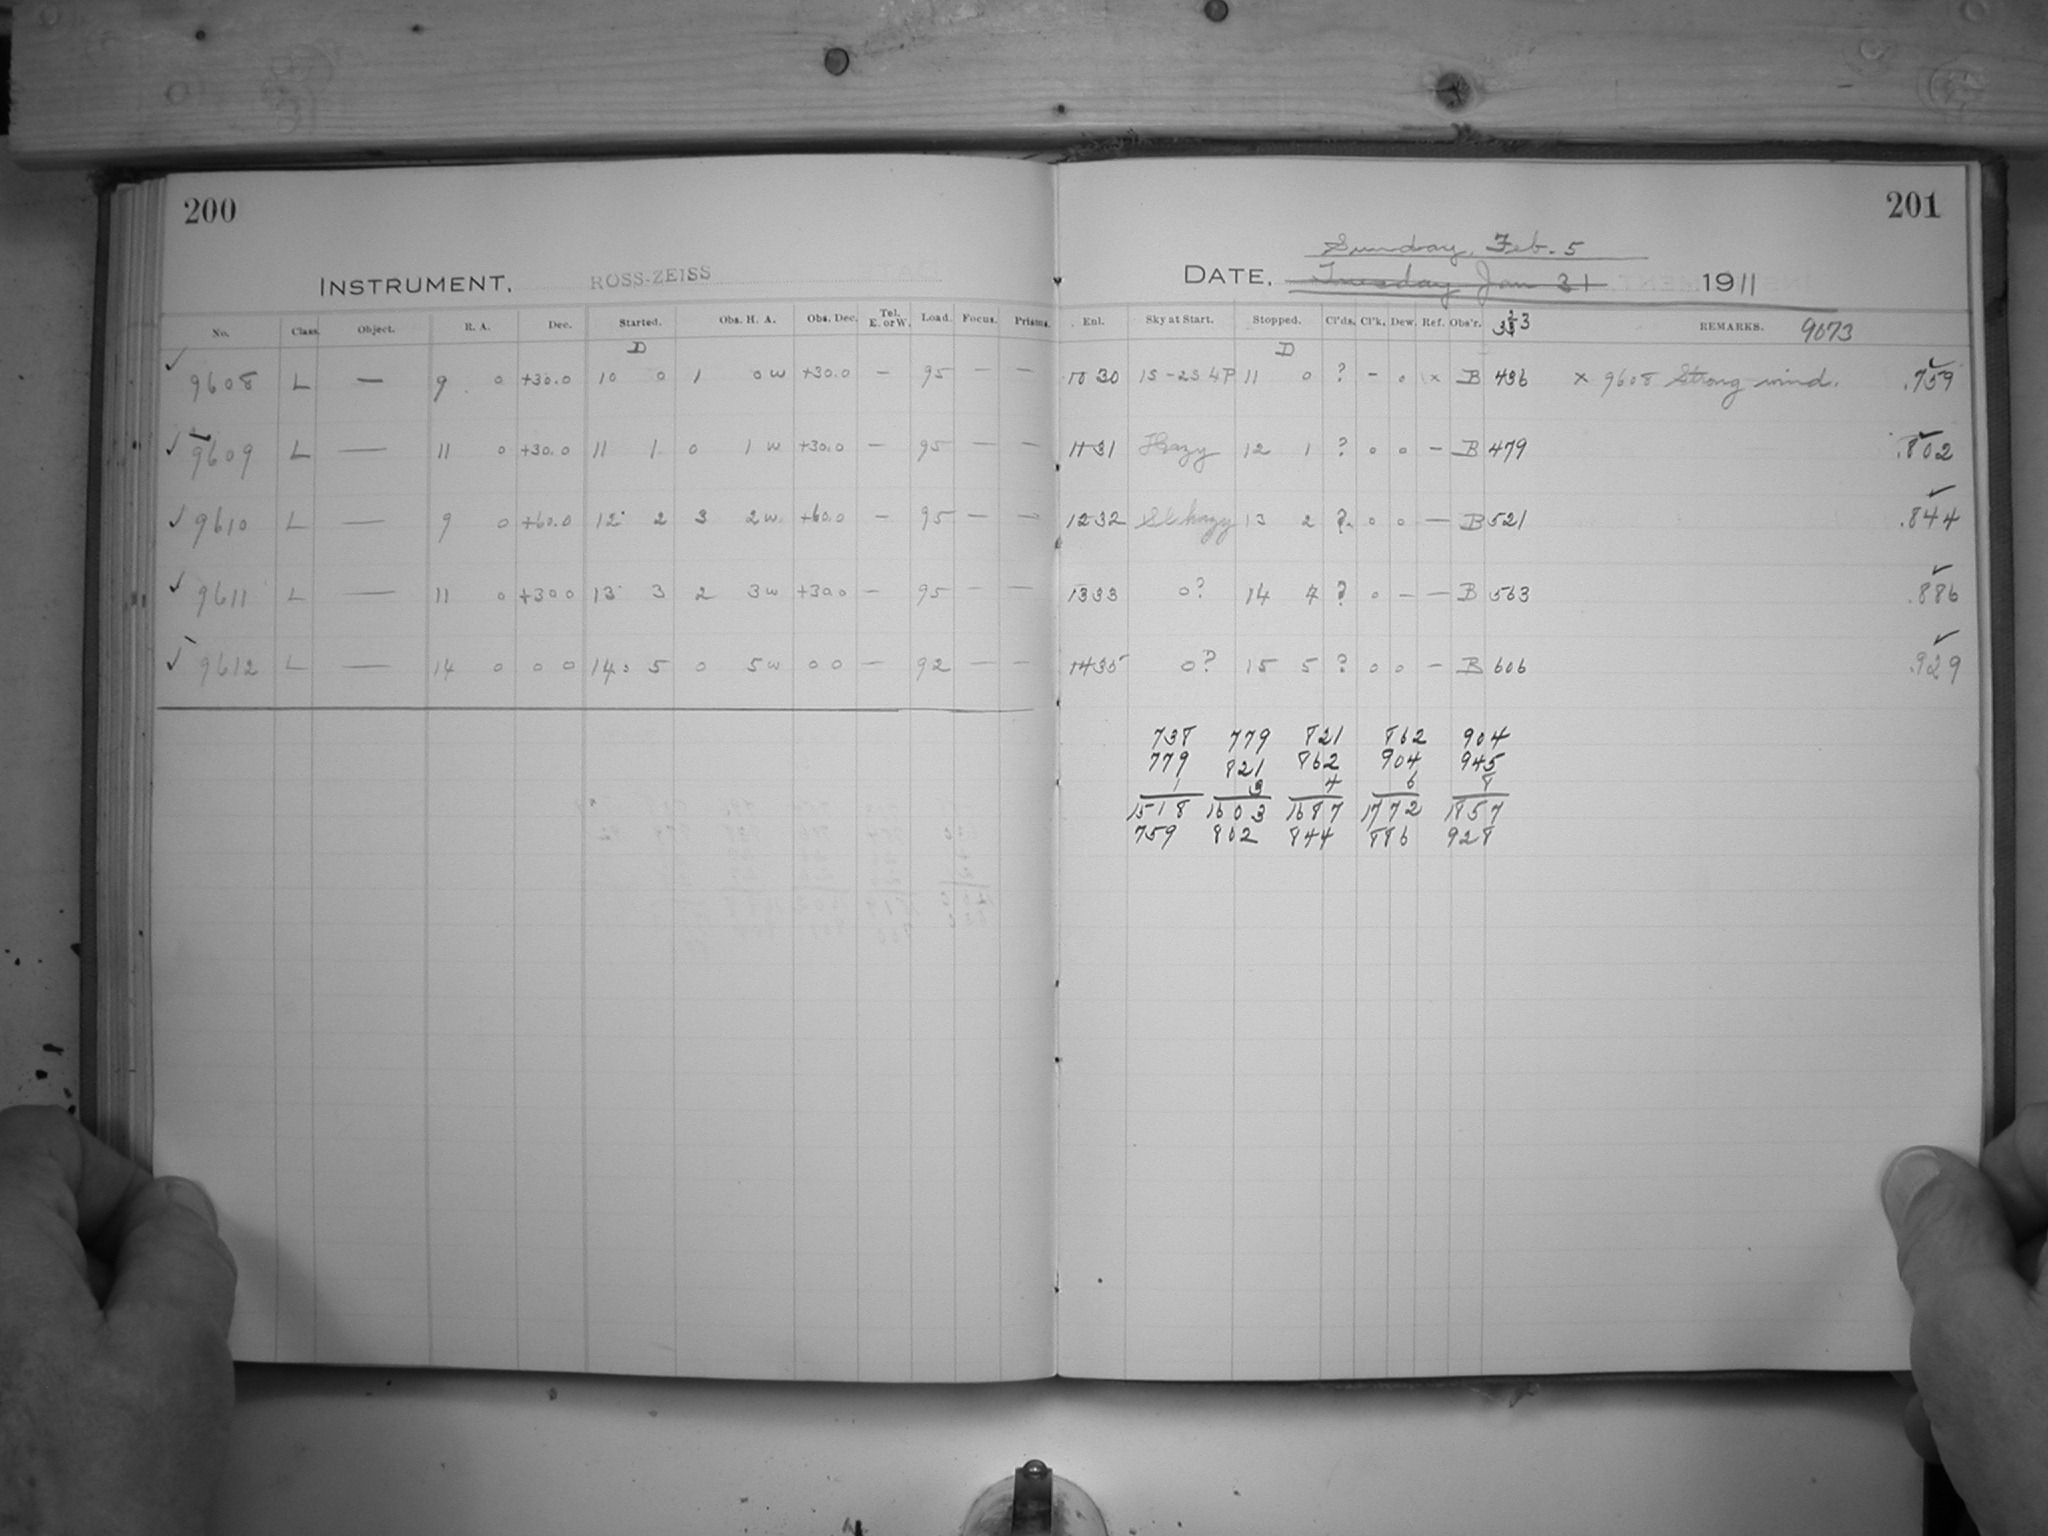 200
INSTRUMENT, ROSS-ZEISS
No. Class. Object. R. A. Dec. Started. Obs. H. A. Obs. Dec. Tel. E. or W. Load. Focus. Prisms.
D
✓ 9608 L — 9 0 +30.0 10 0 1 0 w +30.0 — 95 — —
✓ 9609 L — 11 0 +30.0 11 1 0 1 w +30.0 — 95 — —
✓ 9610 L — 9 0 +60.0 12 2 3 2 w +60.0 — 95 — —
✓ 9611 L — 11 0 +30 0 13 3 2 3 w +30.0 — 95 — —
✓ 9612 L — 14 0 0 0 14 5 0 5 w 0 0 — 92 — —
201
Sunday, Feb. 5
DATE, Tuesday Jan 31 1911
Enl. Sky at Start. Stopped. Cl'ds. Cl'k. Dew. Ref. Obs'r. REMARKS. 9073
D
10 30 1S-2S 4P 11 0 ? - 0 x B 436 x 9608 Strong wind. .759 ✓
11 31 Hazy 12 1 ? 0 0 — B 479 .802 ✓
12 32 Sl. hazy 13 2 ? 0 0 — B 521 .844 ✓
13 33 0? 14 ? 0 — — B 563 .886 ✓
14 35 0? 15 5 ? 0 0 — B 606 .929 ✓
738 779 821 862 904
779 821 862 904 945
1 3 4 6 8
1518 1603 1687 1772 1857
759 802 844 886 928